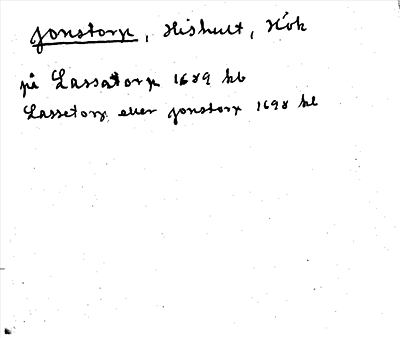 Jonstorp, Hishult, Hök
på Lassatorp 1689 kb
Lassetorp eller Jonstorp 1698 kl